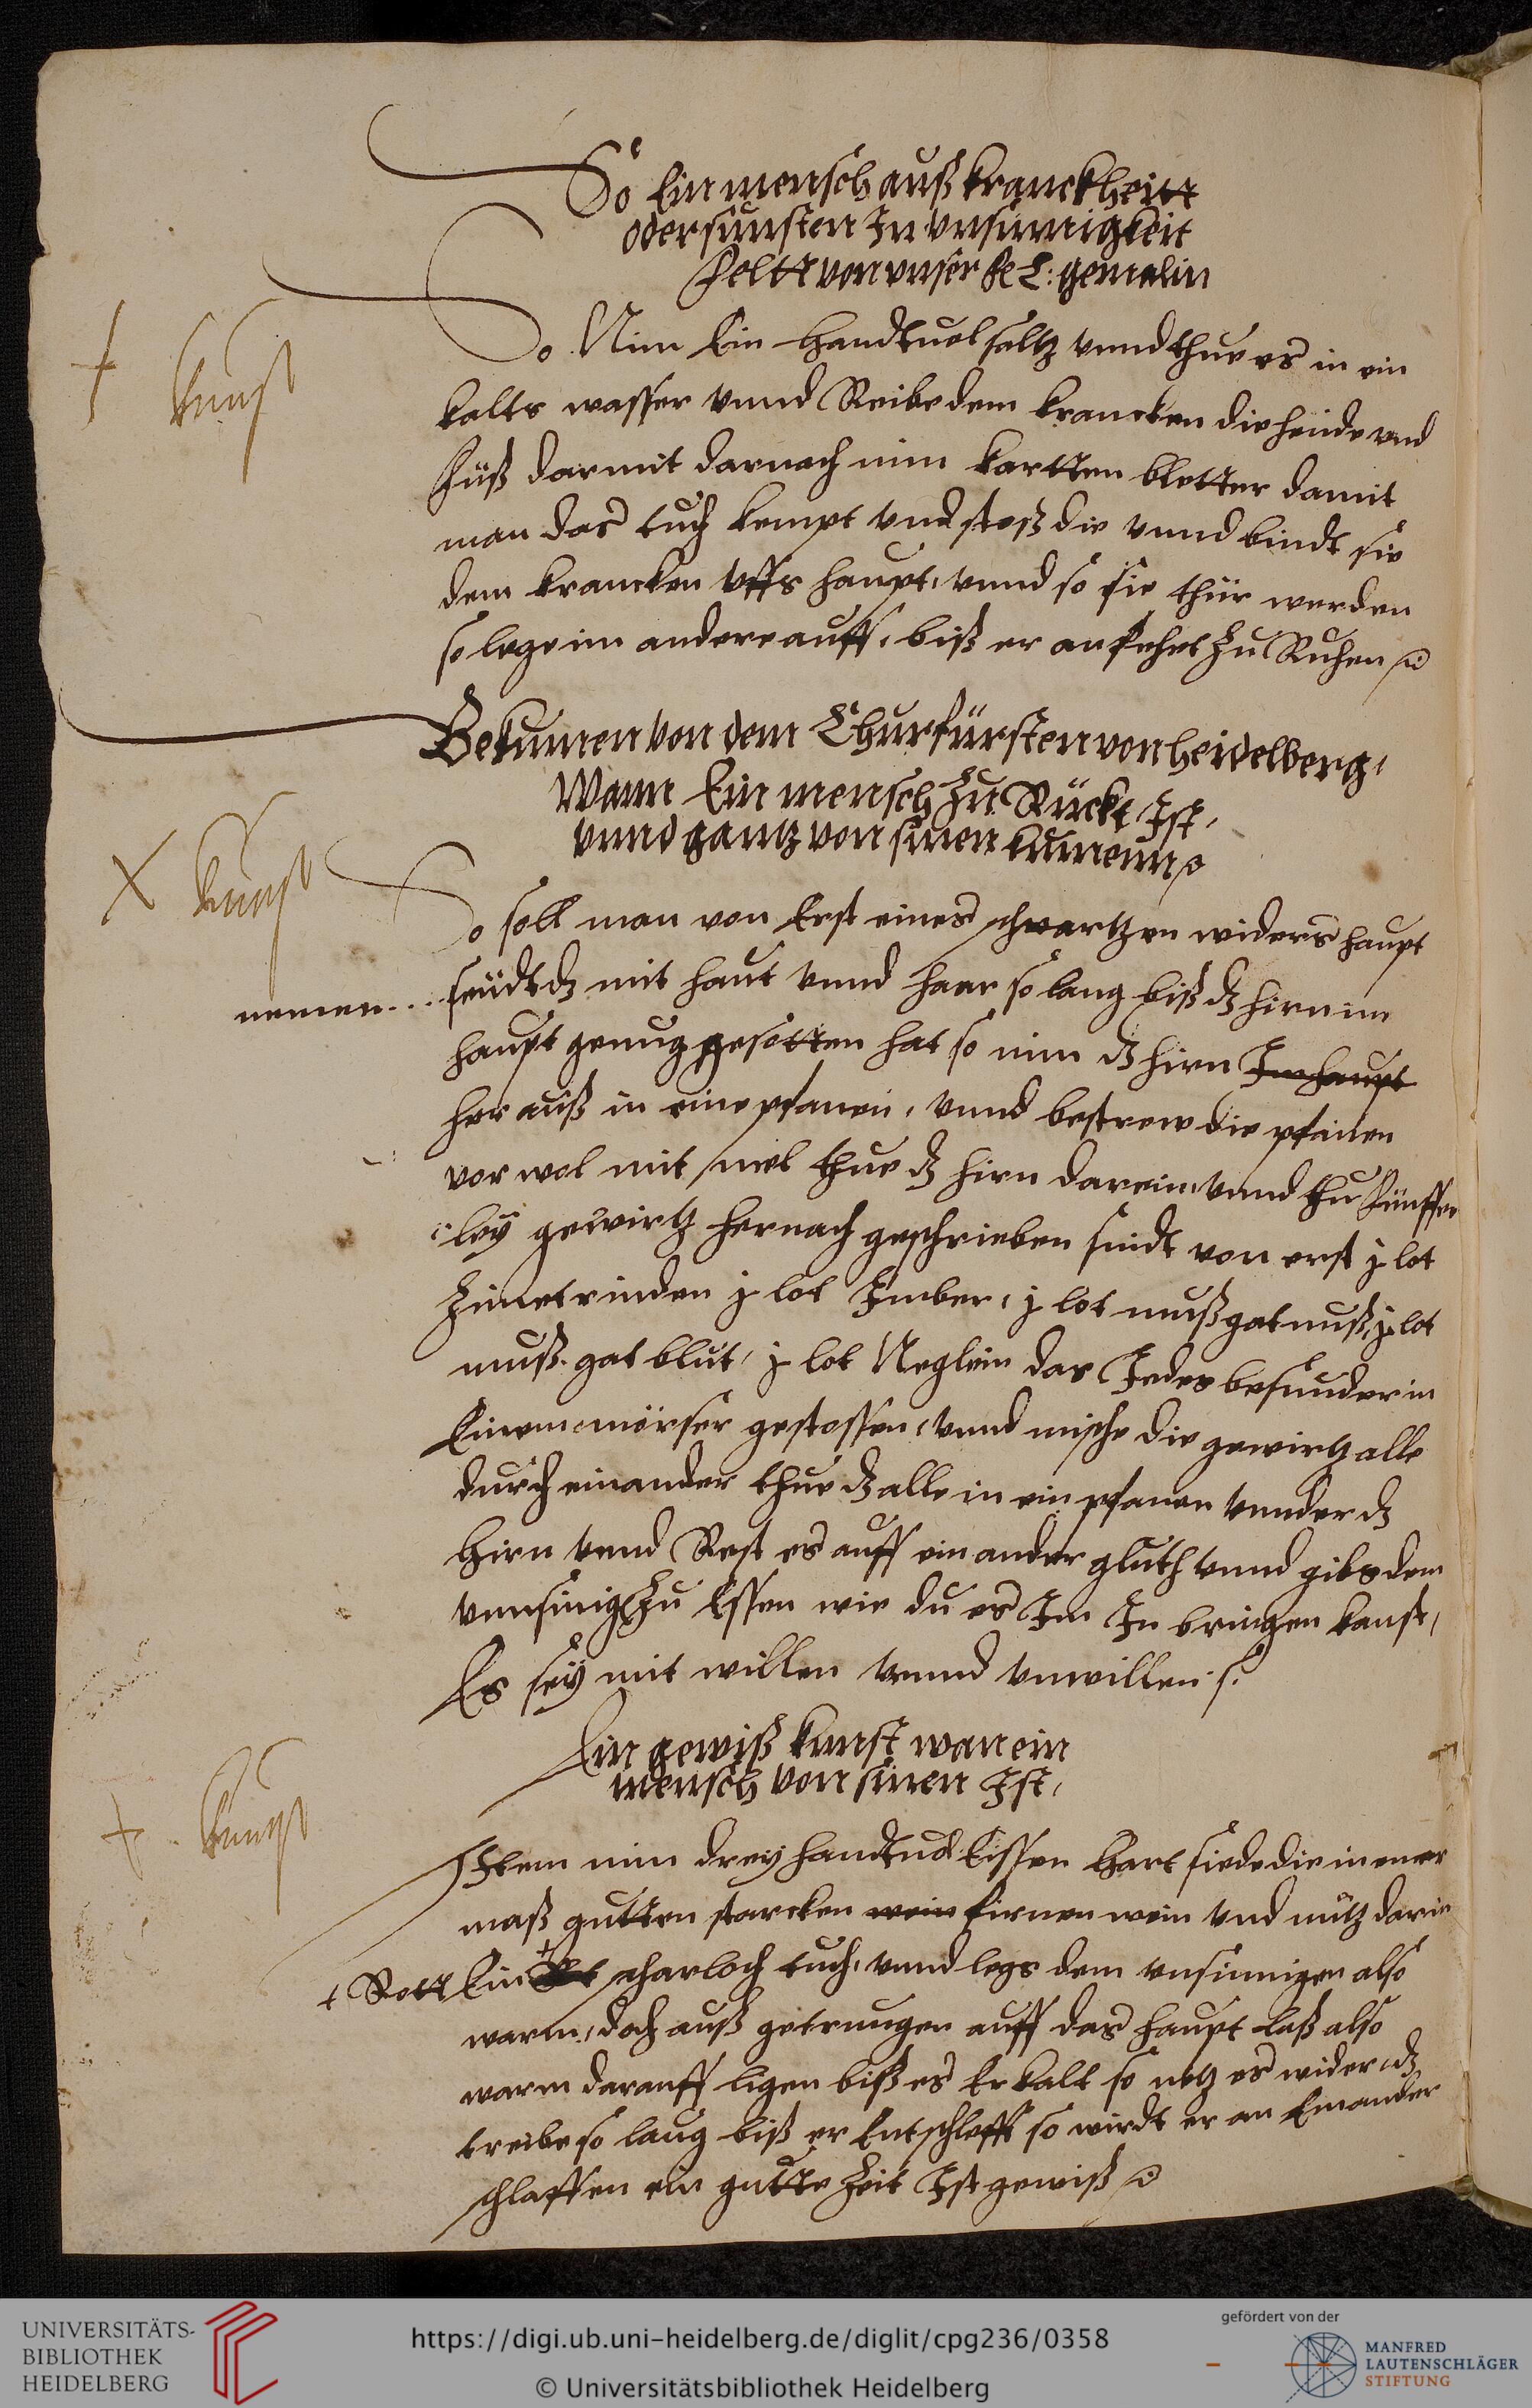 So Ein mensch auß kranckheitt
oder sünsten In unsinnigkeit
feltt von unser F. L: gemalin
So Nim Ein handtuol saltz unnd thue es in ein
kalts wasser unnd Reibe dem krancken die hende und
füß darmit darnach nim kartten bletter damit
man das tuch kempt und stoß die unnd bindt sie
dem krancken uffs haupt, unnd so sie thür werden
so lege im andere auff, biß er anfehet zu Ruhen
Bekumen von dem Churfürsten von heidelberg,
Wann Ein mensch zu Rückt Ist,
unnd gantz von sinen kumenn
So soll man von Erst eines schwartzen widers haupt
nemen... seudt dz mit haut unnd haar so lang biß dz hirn im
haupt genug gesotten hat so nim dz hirn Im haupt
her auß in eine pfanen, unnd bestrew die pfanen
vor wol mit mel thue dz hirn darein, unnd thu fünffer
ley gewirtz hernach geschrieben sindt von erst j lot
Zimetrinden j lot Imber, j lot mußgatnuß, j lot
mußgat blut, j lot Neglein das Jedes besunder in
Einem mörser gestossen, unnd mische die gewirtz alle
durch einander thue dz alle in ein pfanen unnder dz
hirn unnd Rest es auff ein ander gluth unnd gibs dem
unnsinigen zu Essen wie du es Im In bringen kanst,
Es sey mit willen unnd unwillen
Ein gewiß kunst wan ein
mensch von sinen Ist,
Item nim drey handtuol Eissen hart siede die in einer
maß gutten starcken wein firnen wein und nütz darin
† Rott Ein scharloch tuch, unnd legs dem unsinnigen also
warm, doch auß getrungen auff das haupt laß also
warm darauff ligen biß es Erkalt so netz es wider, dz
treibe so lang biß er Entschlefft so wirdt er an Einander
schlaffen ein gutte Zeit Ist gewiß
† kunst
× kunst
† kunst
UNIVERSITÄTS-
BIBLIOTHEK
HEIDELBERG
https://digi.ub.uni-heidelberg.de/diglit/cpg236/0358
© Universitätsbibliothek Heidelberg
gefördert von der
MANFRED
LAUTENSCHLÄGER
STIFTUNG